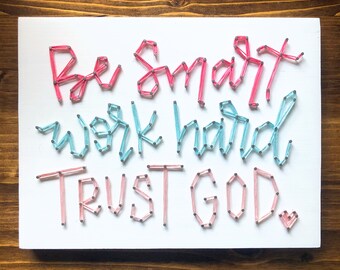 Be Smart
work hard
TRUST GOD.